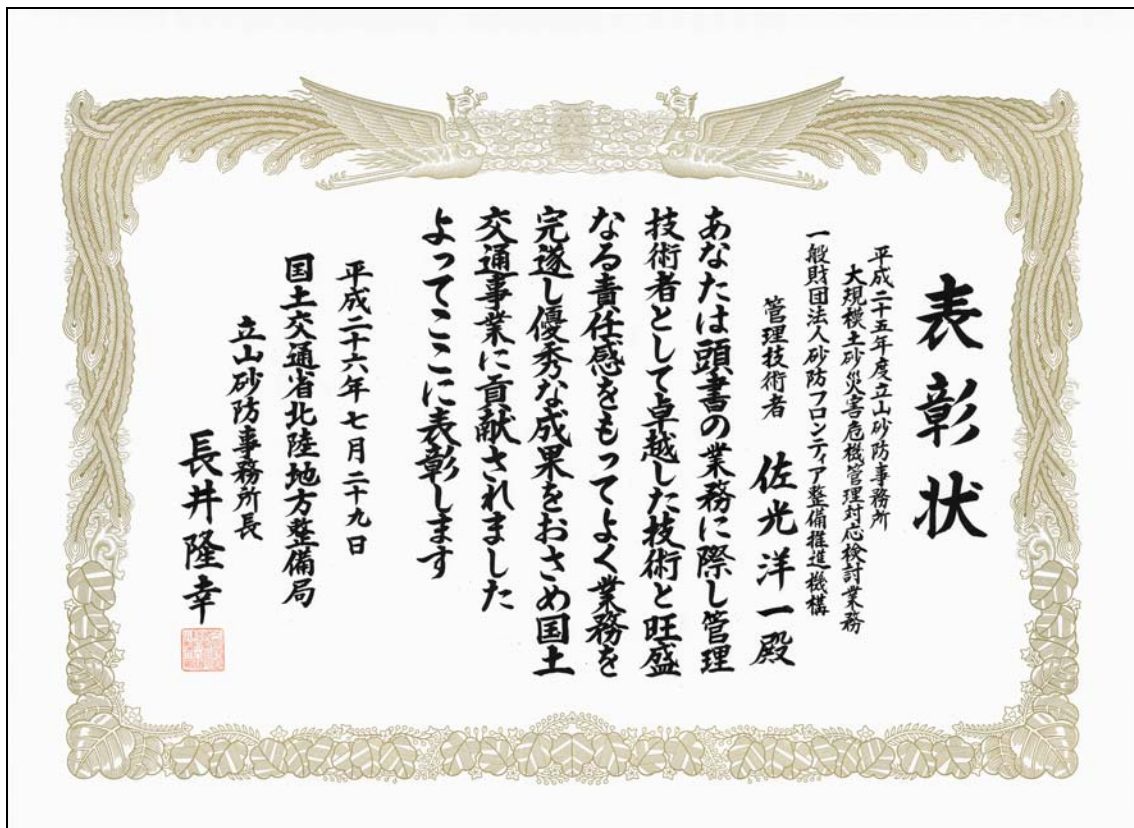 表彰状
平成二十五年度立山砂防事務所
大規模土砂災害危機管理対応検討業務
一般財団法人砂防フロンティア整備推進機構
管理技術者 佐光洋一殿
あなたは頭書の業務に際し管理
技術者として卓越した技術と旺盛
なる責任感をもってよく業務を
完遂し優秀な成果をおさめ国土
交通事業に貢献されました
よってここに表彰します
平成二十六年七月二十九日
国土交通省北陸地方整備局
立山砂防事務所長
長井隆幸